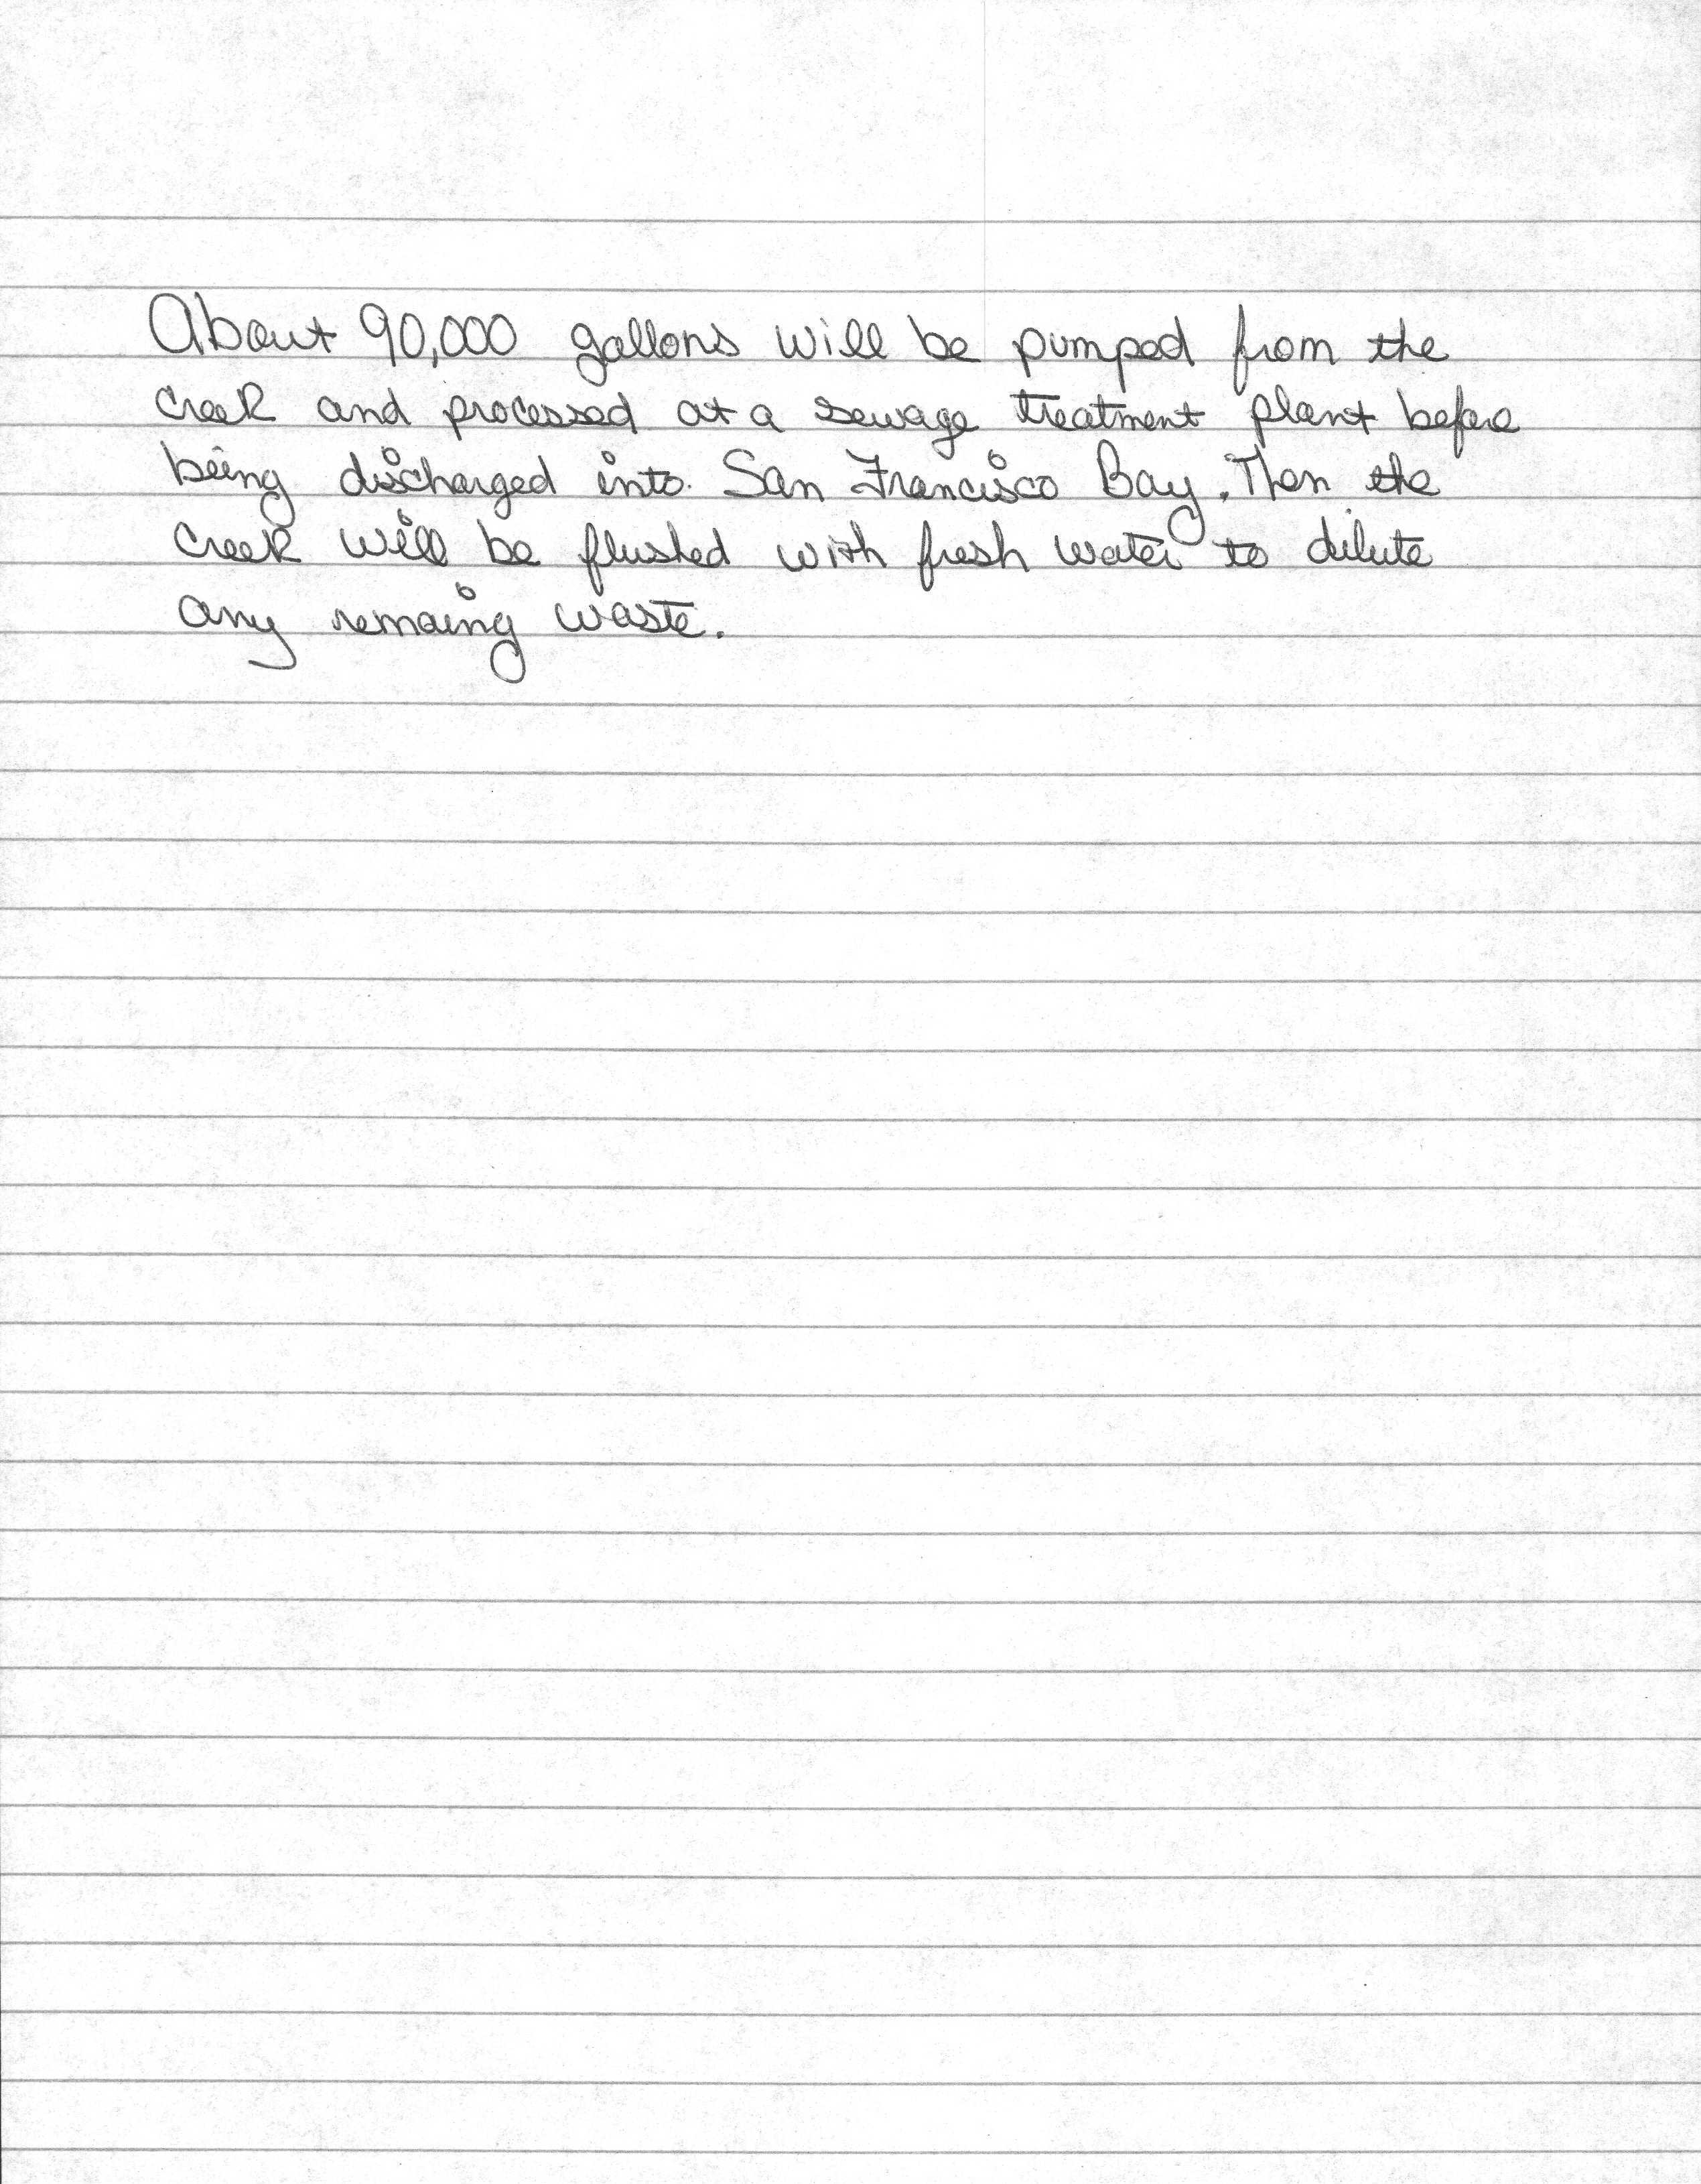 About 90,000 gallons will be pumped from the
creek and processed at a sewage treatment plant before
being discharged into San Francisco Bay. Then the
creek will be flushed with fresh water to dilute
any remaing waste.